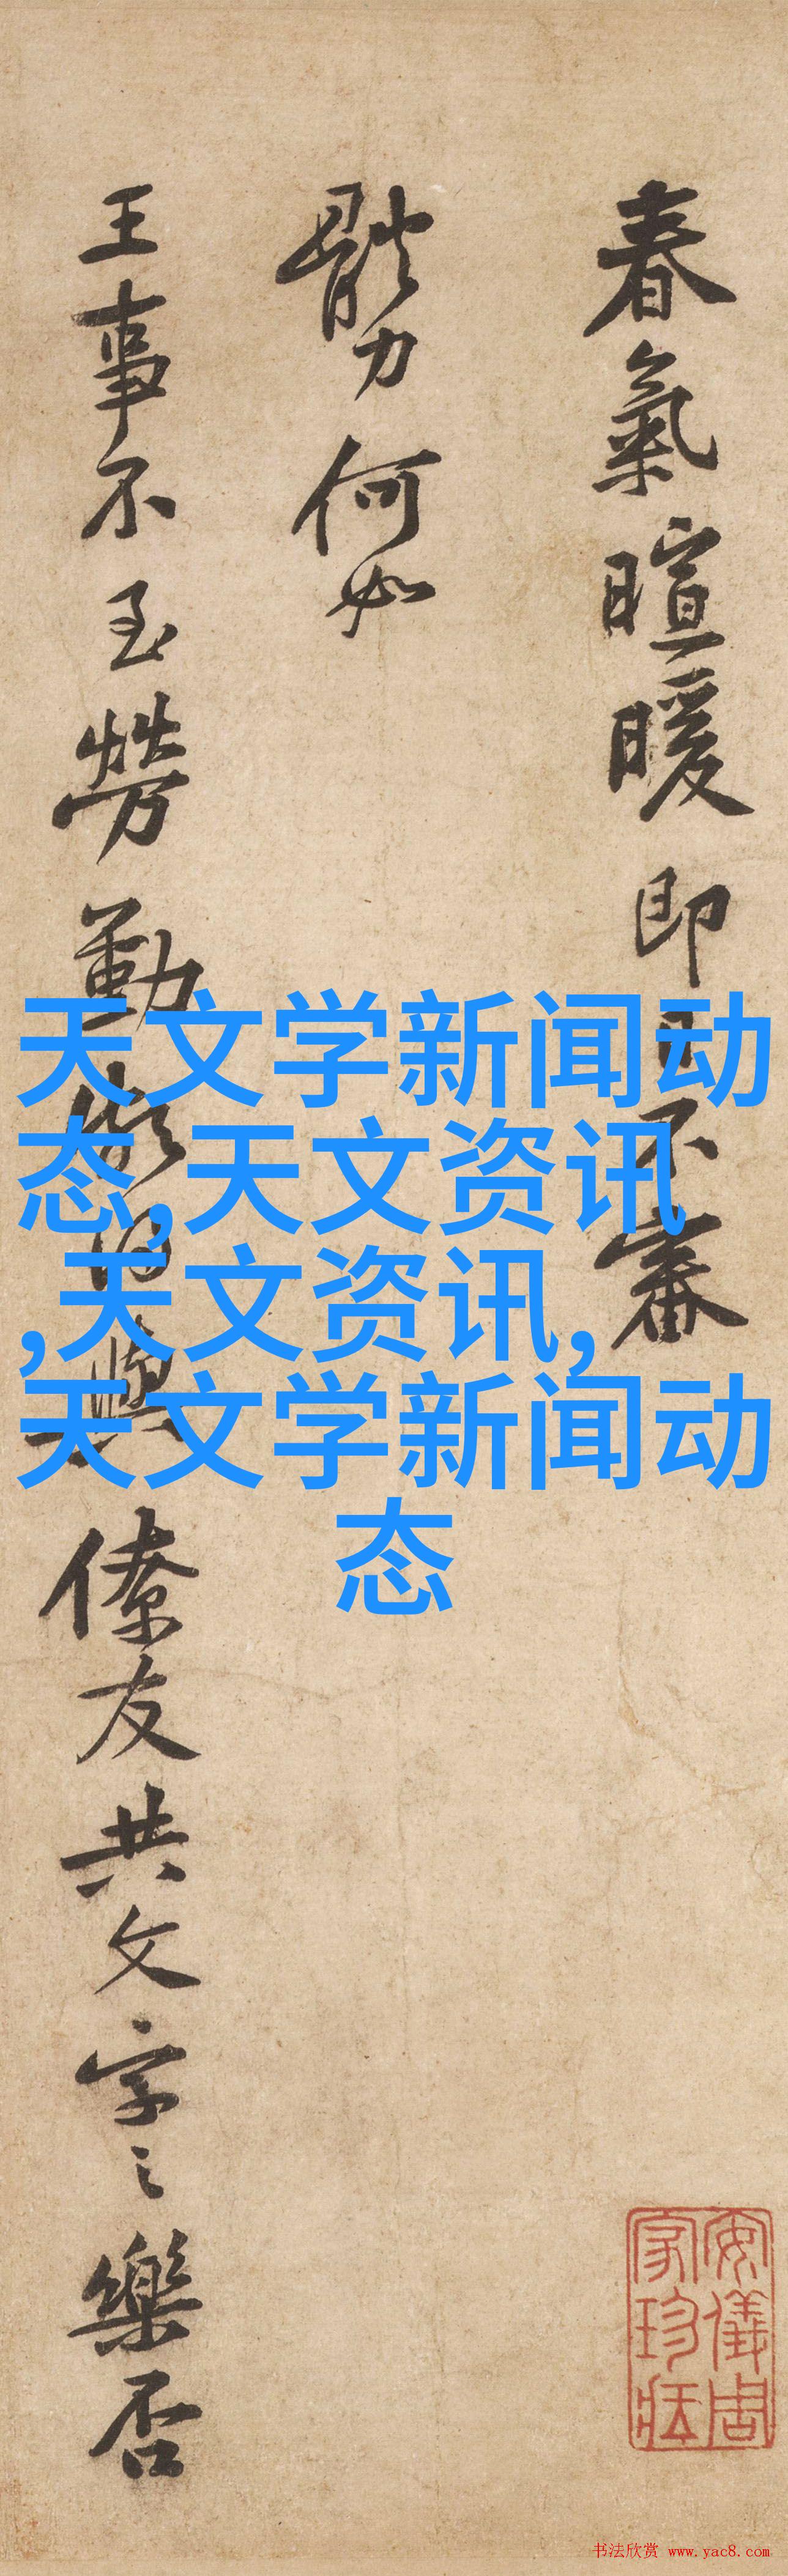 春氣暄暖即日不審
體力何如
王事不至勞勤日與僚友共文字之樂否
天文学新闻动
态,天文资讯
,天文资讯,
天文学新闻动
态
安儀周
家珍藏
书法欣赏 www.yac8.com